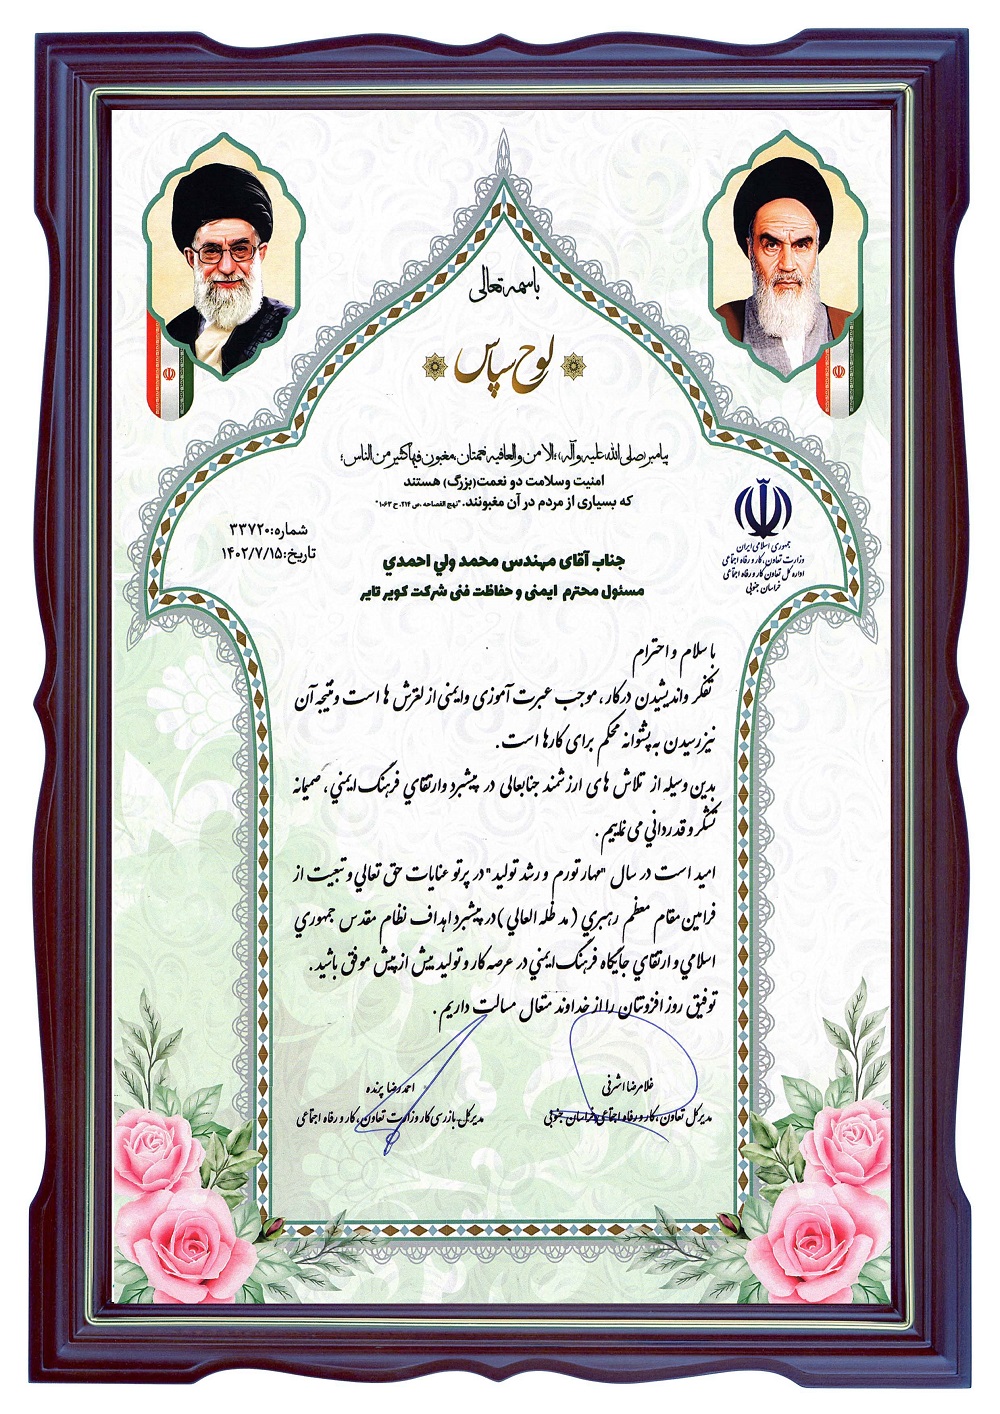 باسمه تعالی
لوح سپاس
پیامبر(صلی الله علیه و آله): الامن و العافیه نعمتان، مغبون فیها کثیر من الناس؛
امنیت وسلامت دو نعمت(بزرگ) هستند
که بسیاری از مردم در آن مغبونند. "نهج الفصاحه ،ص ۲۱۴، ح ۱۰۶۳"
شماره:۳۳۷۲۰
تاریخ:۱۴۰۲/۷/۱۵
جمهوری اسلامی ایران
وزارت تعاون، کار و رفاه اجتماعی
اداره کل تعاون کار و رفاه اجتماعی
خراسان جنوبی
جناب آقای مهندس محمد ولي احمدي
مسئول محترم ایمنی و حفاظت فنی شرکت کویر تایر
با سلام و احترام
تفکر واندیشیدن درکار ، موجب عبرت آموزی وایمنی از لغزش ها است ونتیجه آن
نیزرسیدن به پشتوانه محکم برای کارها است .
بدین وسیله از تلاش های ارزشمند جنابعالی در پیشبرد وارتقاي فرهنگ ایمني ، صمیمانه
تشکر و قدرداني می نماییم .
امید است در سال "مهار تورم و رشد تولید" در پرتو عنایات حق تعالي و تبعیت از
فرامین مقام معظم رهبري ( مد ظله العالي )در پیشبرد اهداف نظام مقدس جمهوري
اسلامي و ارتقاي جایگاه فرهنگ ایمني در عرصه کار و تولید بیش از پیش موفق باشید .
توفیق روز افزونتان را از خداوند متعال مسالت داریم .
غلامرضا اشرفی
مدیرکل تعاون، کار و رفاه اجتماعی خراسان جنوبی
احمدرضا پرنده
مدیرکل بازرسی کار وزارت تعاون، کار و رفاه اجتماعی